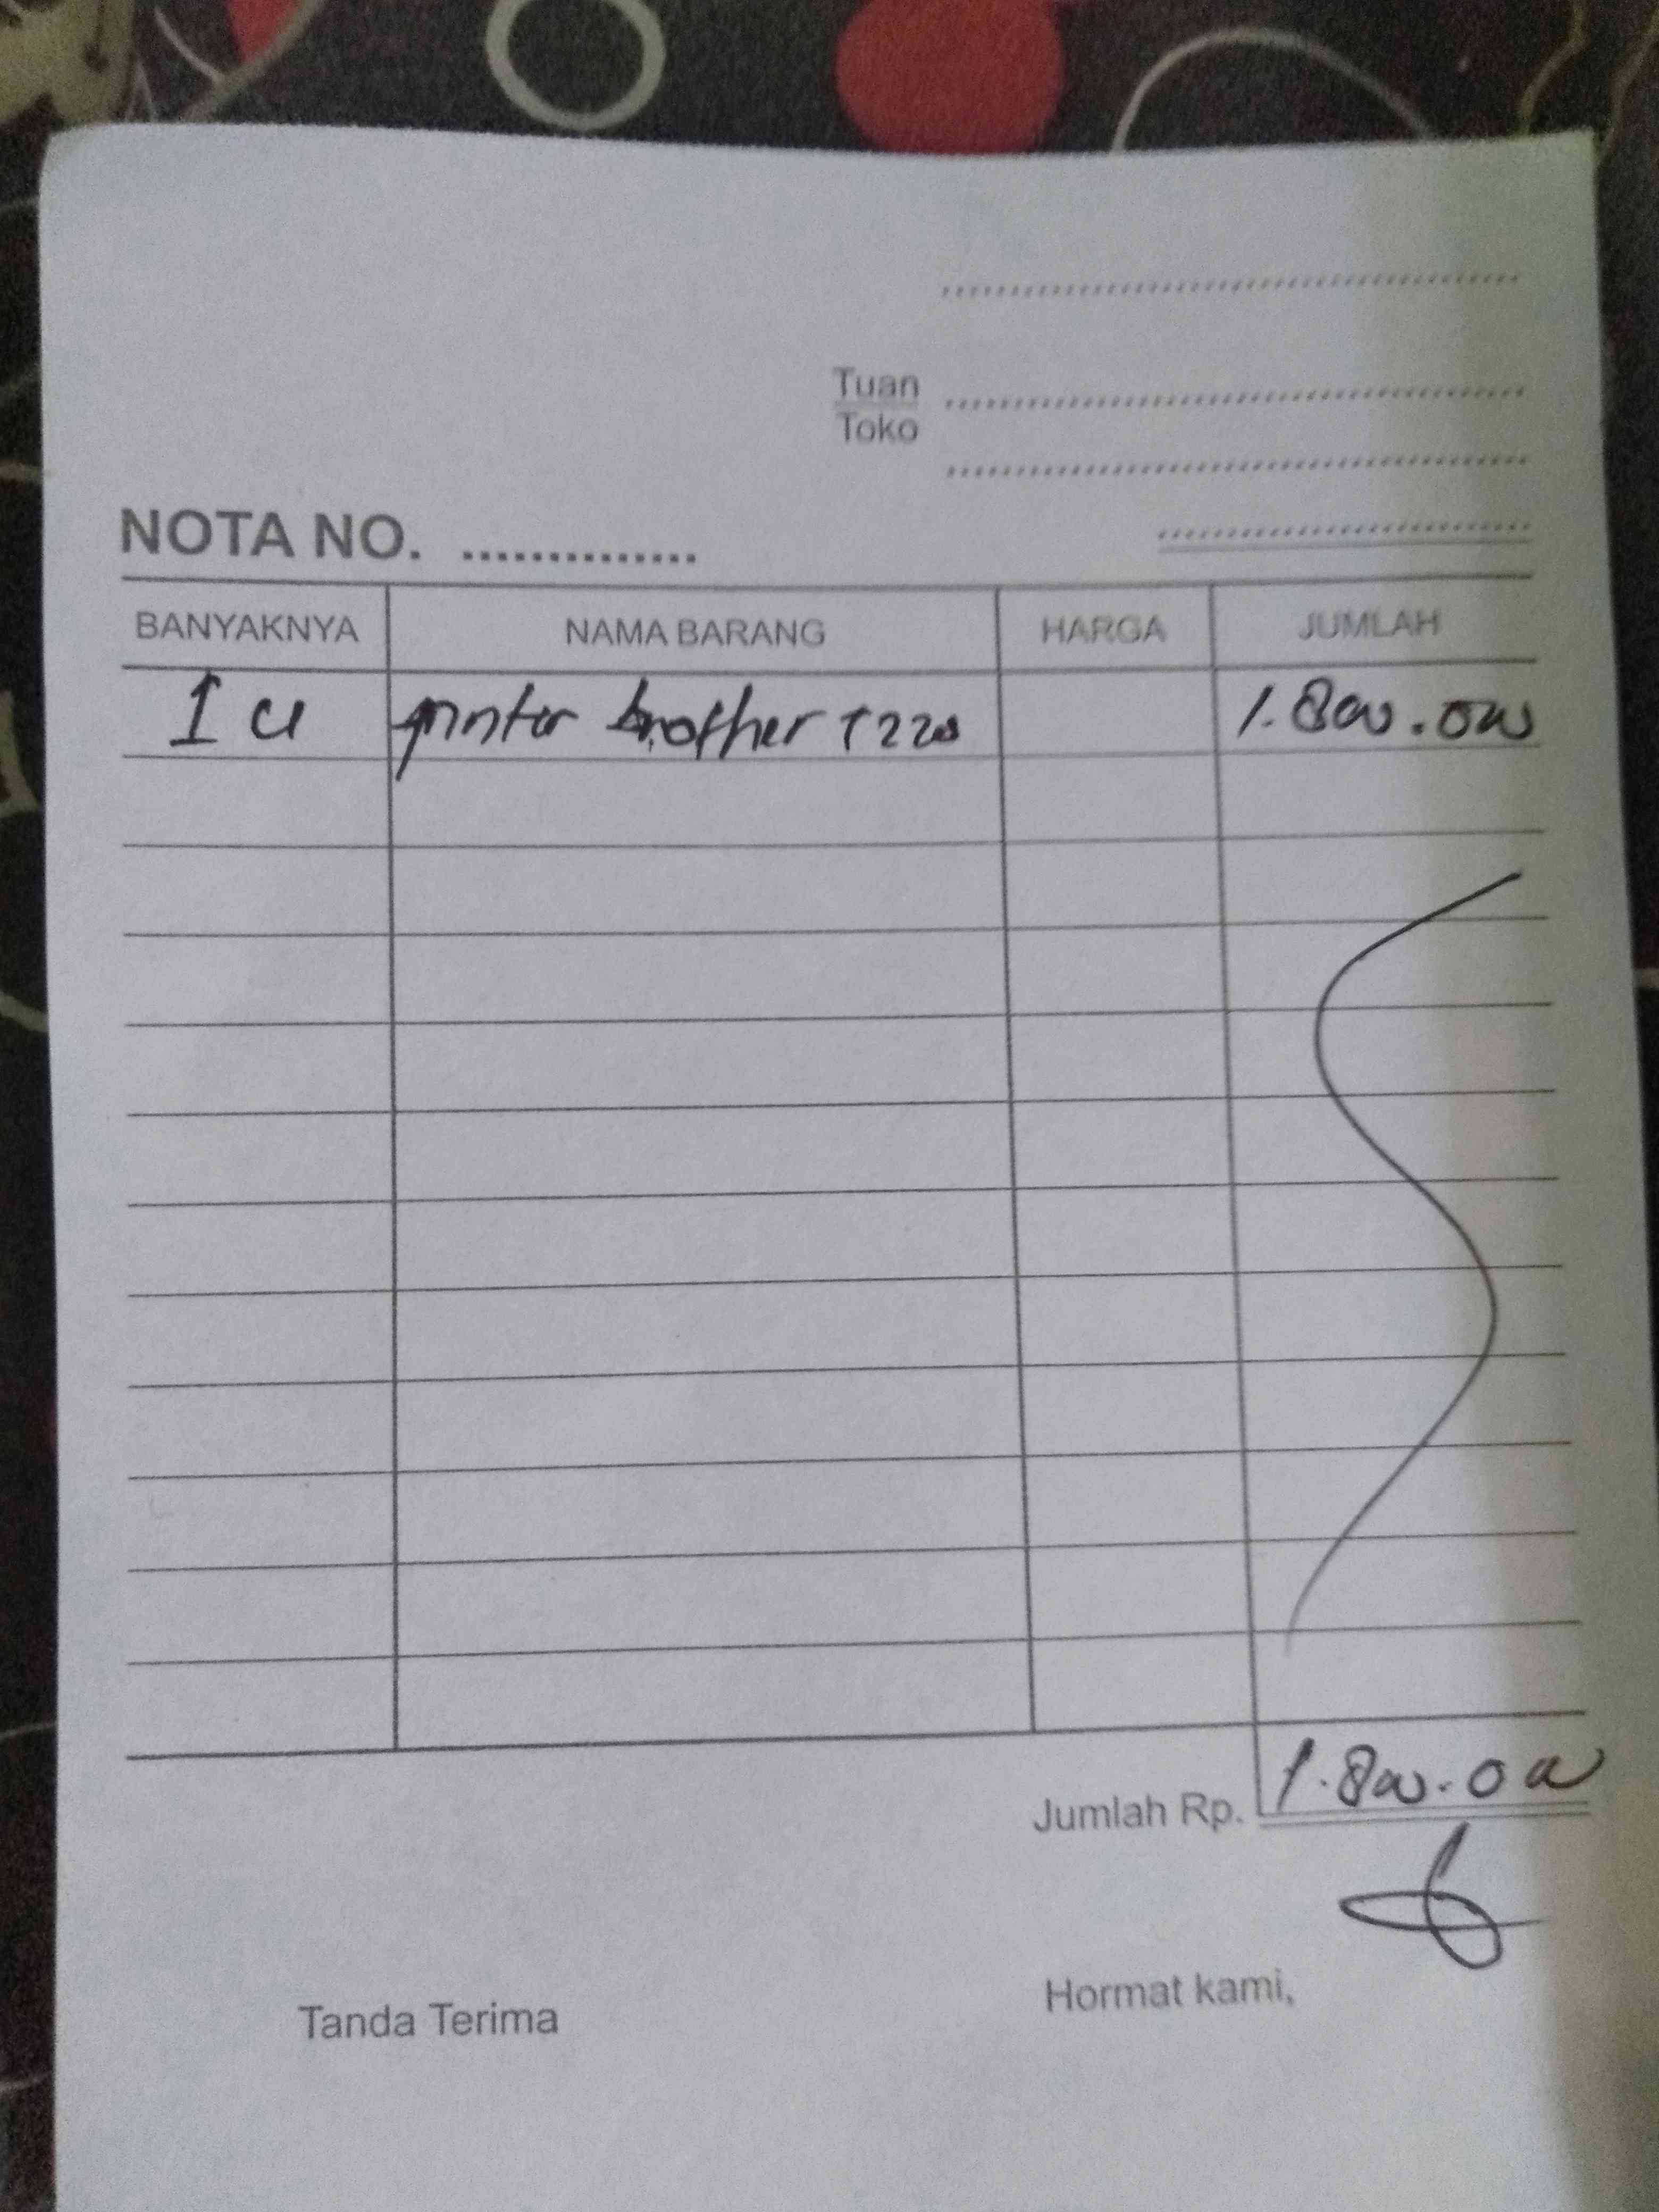 Tuan
Toko
NOTA NO. ..............
BANYAKNYA NAMA BARANG HARGA JUMLAH
1 u printer brother T220 1.800.000
Jumlah Rp. 1.800.000
Hormat kami,
Tanda Terima